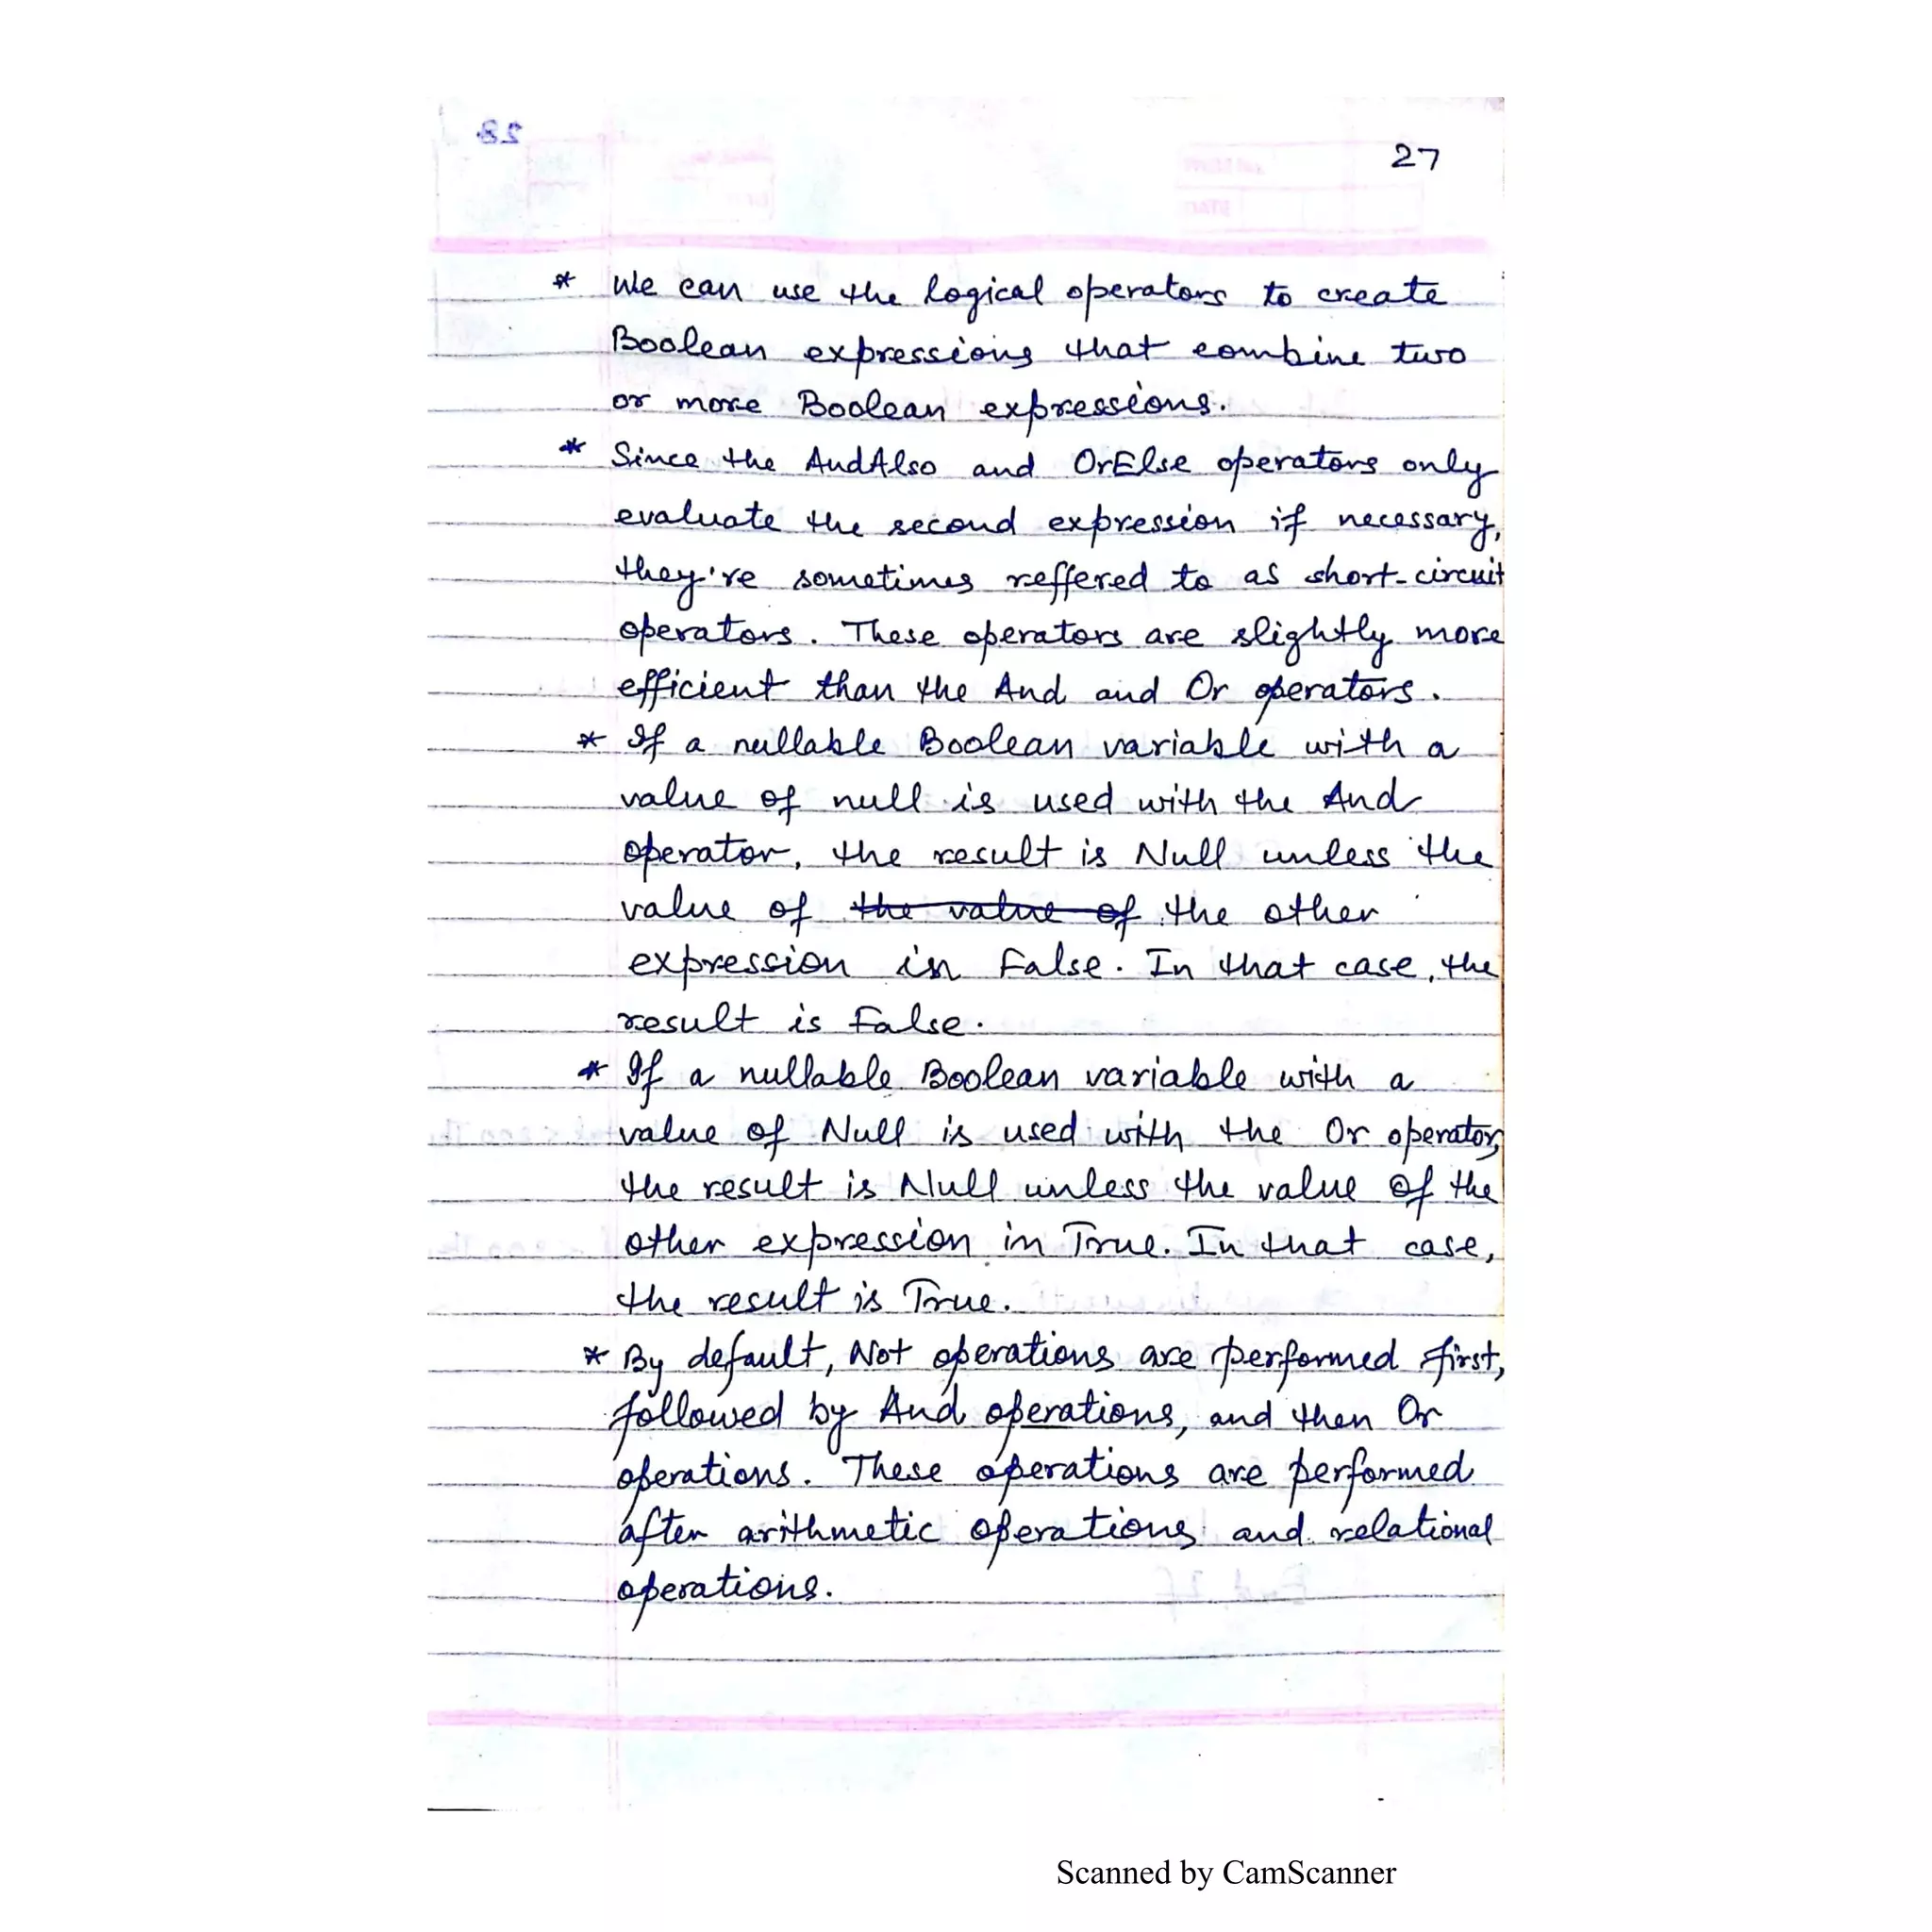 27
* We can use the logical operators to create
Boolean expressions that combine two
or more Boolean expressions.
* Since the AndAlso and OrElse operators only
evaluate the second expression if necessary,
they're sometimes reffered to as short-circuit
operators. These operators are slightly more
efficient than the And and Or operators.
* If a nullable Boolean variable with a
value of null is used with the And
operator, the result is Null unless the
value of ~~the value of~~ the other
expression in False. In that case, the
result is False.
* If a nullable Boolean variable with a
value of Null is used with the Or operator,
the result is Null unless the value of the
other expression in True. In that case,
the result is True.
* By default, Not operations are performed first,
followed by And operations, and then Or
operations. These operations are performed
after arithmetic operations and relational
operations.
Scanned by CamScanner